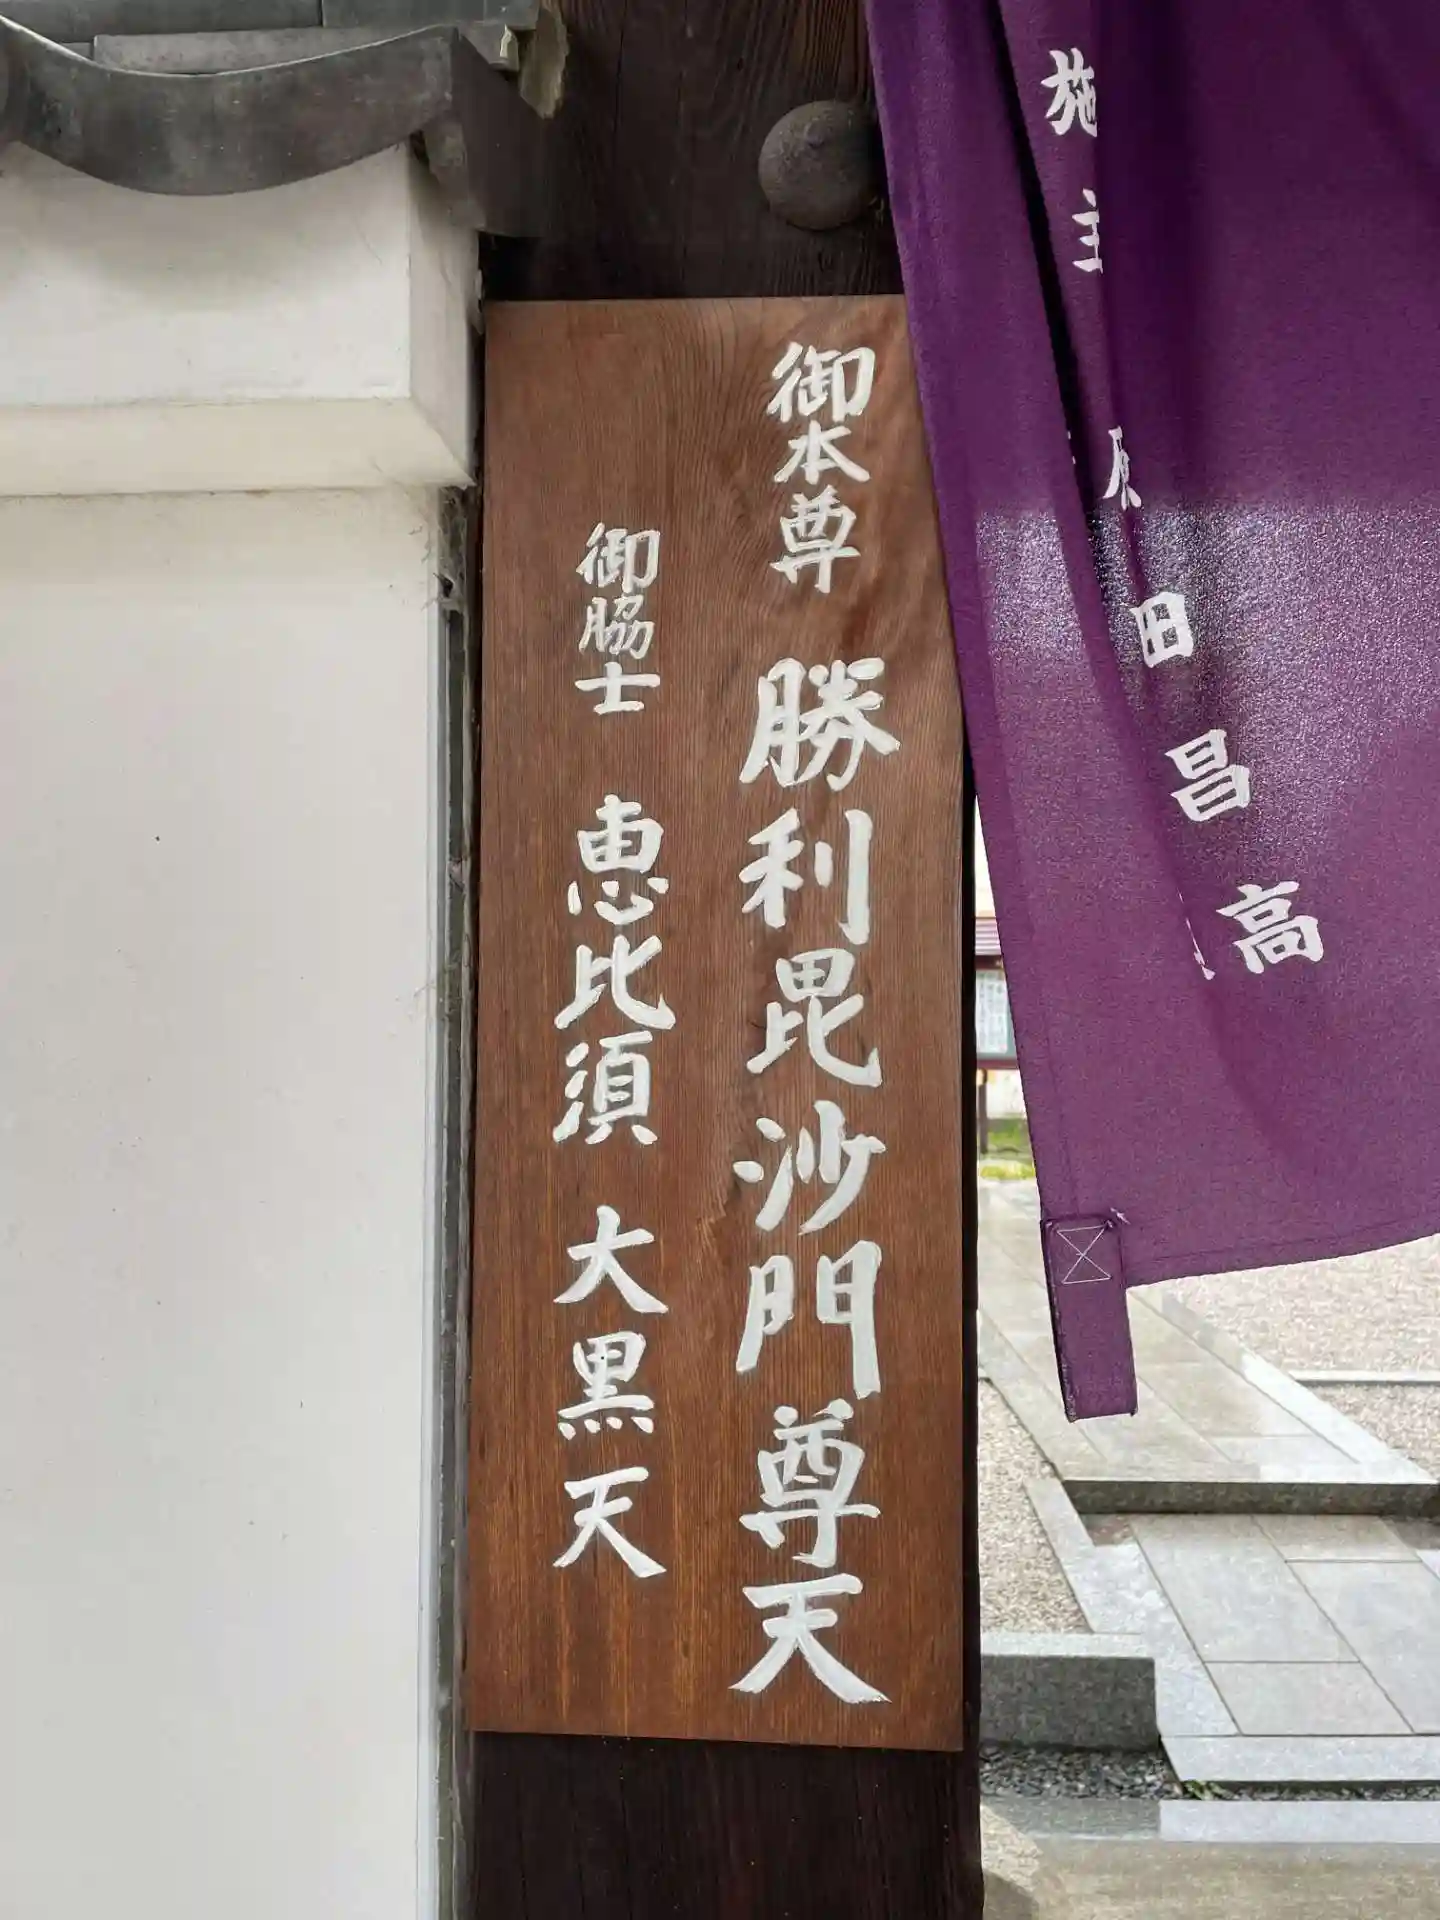 施主 原田昌高
御本尊 勝利毘沙門尊天
御脇士 恵比須 大黒天